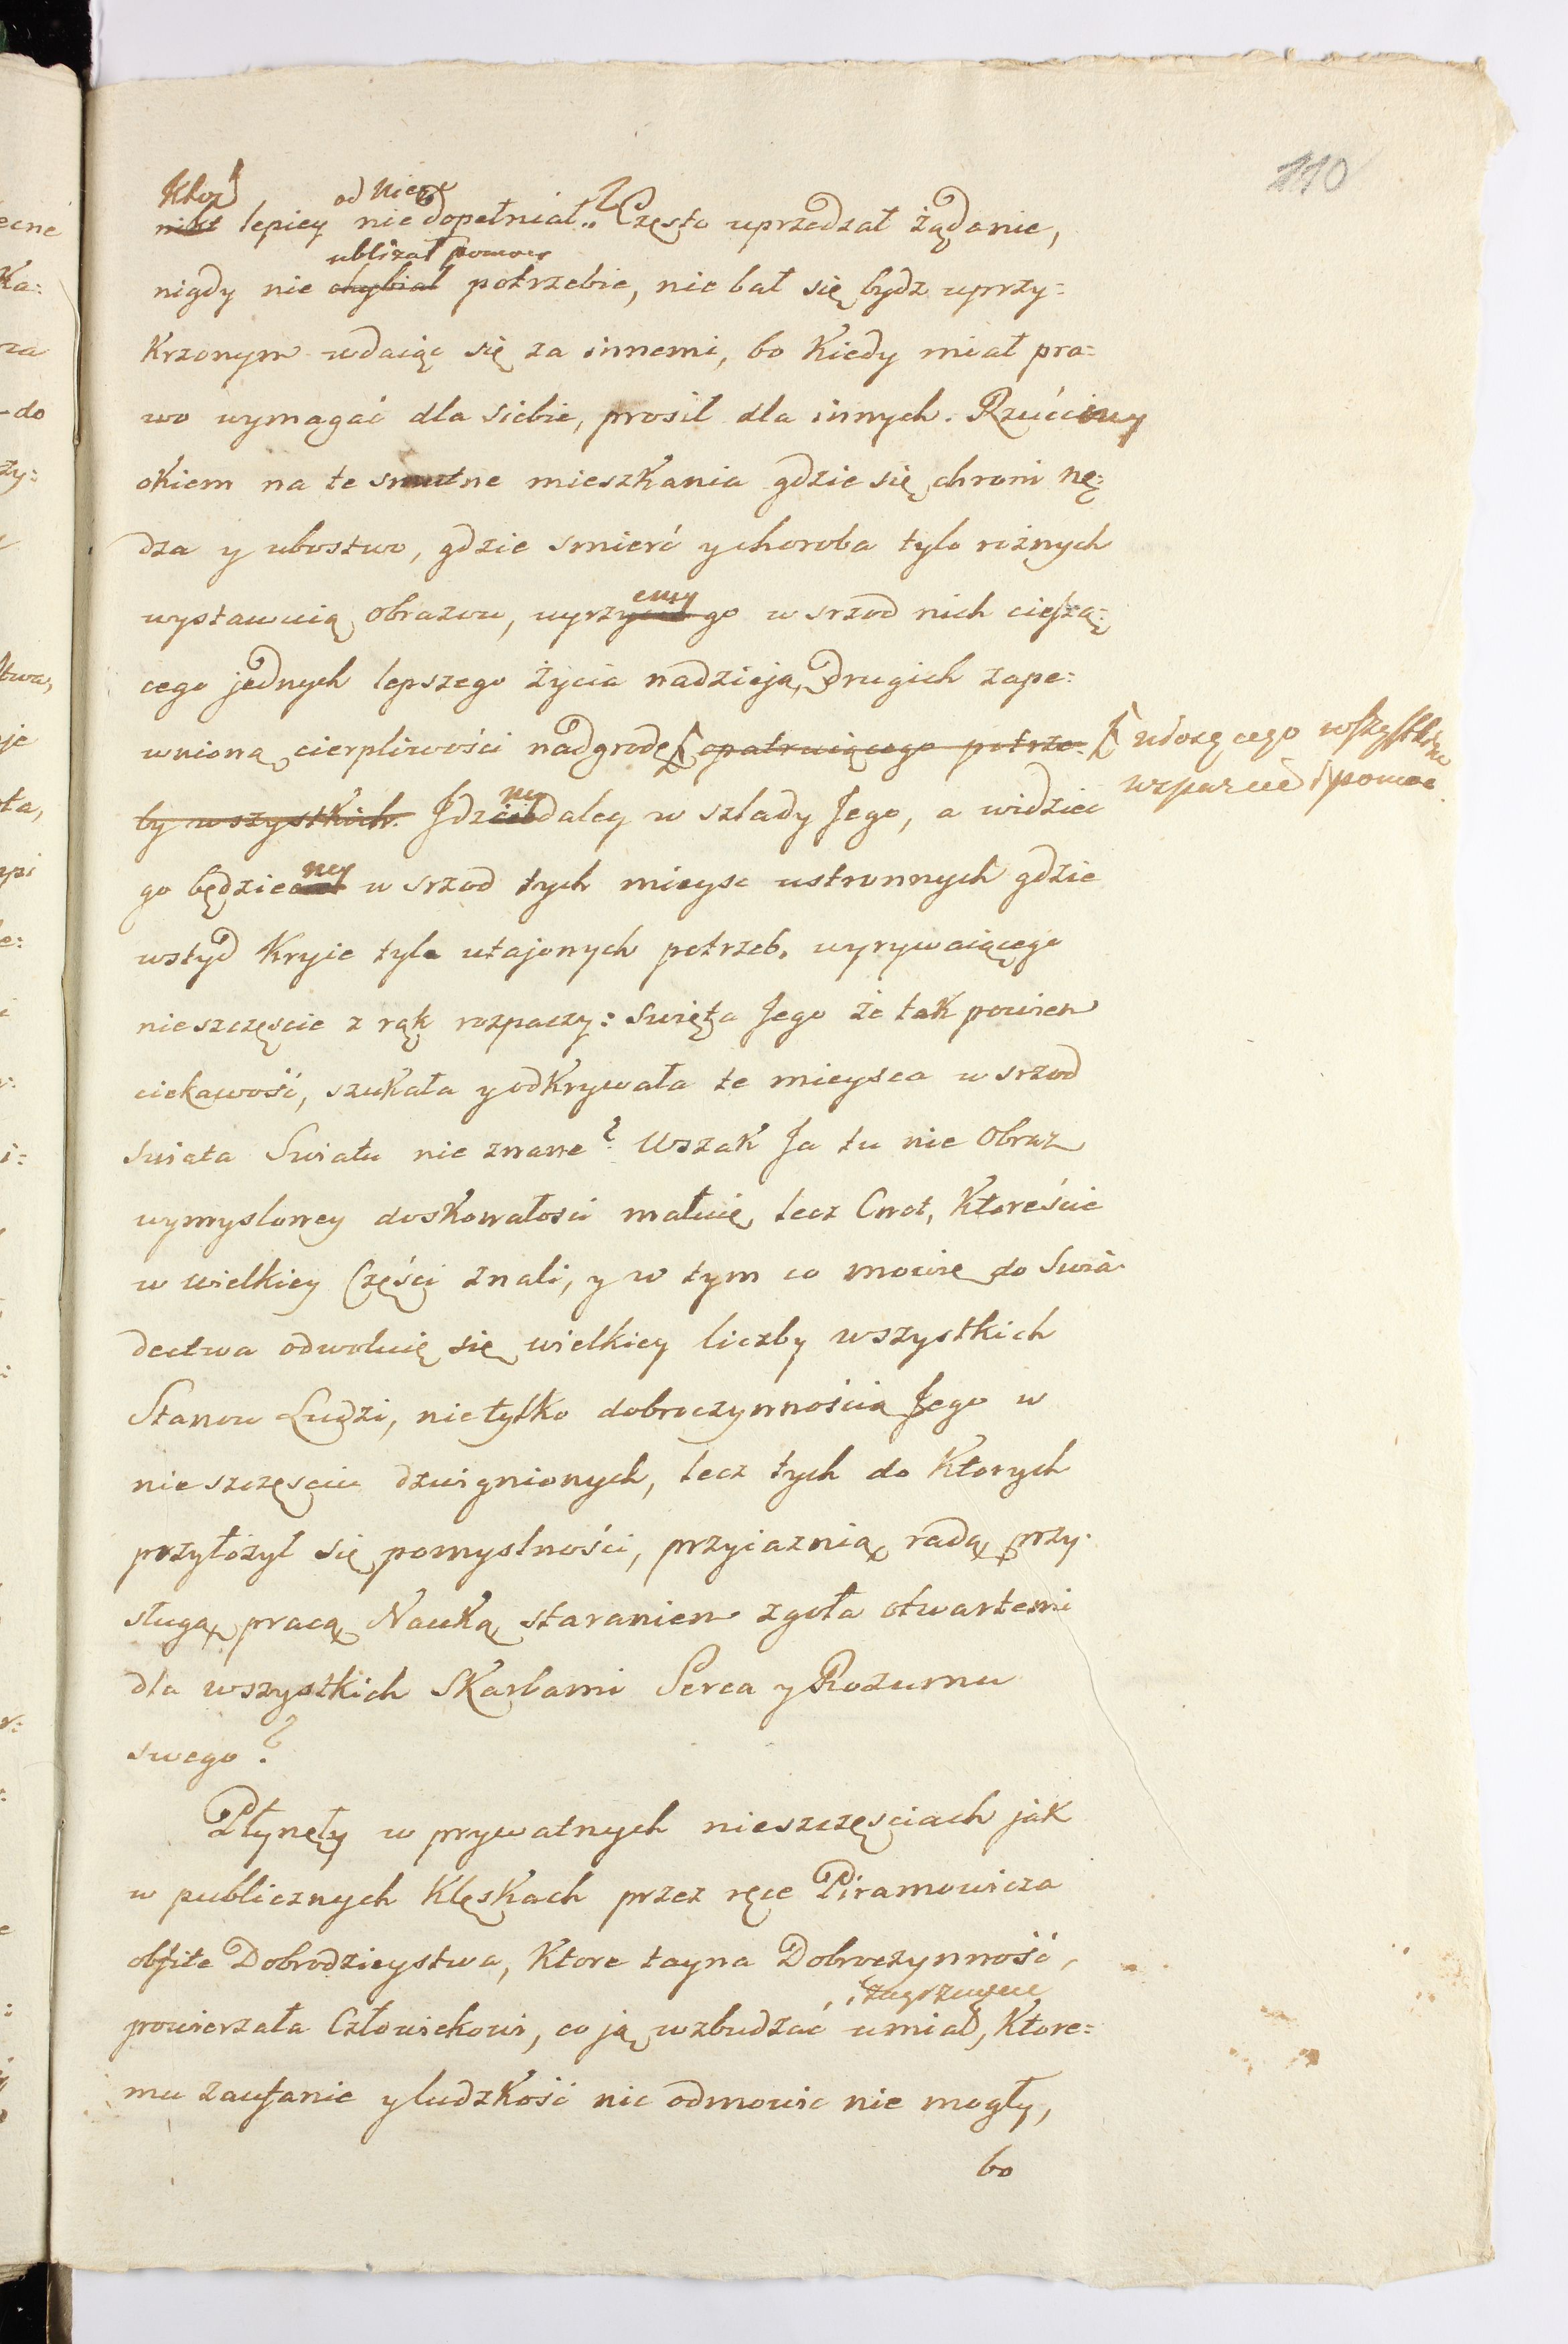 110
Ktoż od Niego
nikt lepiey nie dopełniał.. ? Często uprzedzał żądanie,
ubliżał pomocy
nigdy nie chybiał potrzebie, nie bał się bydz uprzy=
krzonym udaiąc się za innemi, bo Kiedy miał pra=
wo wymagać dla siebie, prosił dla innych. Rzućmy
okiem na te smutne mieszkania gdzie się chroni nę=
dza y ubostwo, gdzie smierć y choroba tylo rożnych
emy
wystawuią obrazow, uyrzy go w srzod nich ciesżą=
cego jednych lepszego życia nadzieją, drugich zape=
wnioną cierpliwości nadgrodę opatruiącego potrze=
niosącego wszystkim
wsparcie i pomoc
by wszystkich. Jdzmy daley w szlady Jego, a widziec
my
go będziem w srzod tych mieysc ustronnych gdzie
wstyd Kryie tyle utajonych potrzeb, wyrywaiącego
nieszczęscie z rąk rozpaczy: Swięta Jego że tak powiem
ciekawość, szukała y odkrywała te mieysca w srzod
swiata Swiatu nie znane? Wszak Ja tu nie Obraz
wymysloney doskonałosci maluię, lecz Cnot, Ktoreście
w wielkiey Części znali, y w tym co mowię do Swia=
dectwa odwoluię się wielkiey liczby wszystkich
Stanow Ludzi, nietylko dobroczynnością Jego w
nieszczęsciu dzwignionych, lecz tych do Ktorych
przyłożył się pomyslności, przyiaznią, radą, przy=
sługą, pracą, Nauką, staraniem zgoła otwartemi
dla wszystkich Skarbami Serca y Rozumu
swego?
Płynęły w prywatnych nieszczęsciach jak
w publicznych Klęskach przez ręce Piramowicza
obfite Dobrodzieystwa, Ktore tayna Dobroczynność,
powierzała Człowiekowi, co ją wzbudzać umiał, Ktore=
mu zaufanie y ludzkość nic odmowic nie mogły,
bo